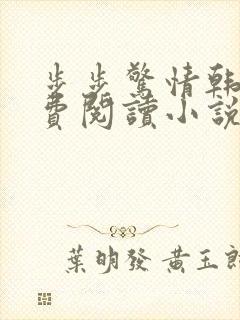 步步驚情韓
費閱讀小說
葉明發 黃玉郎